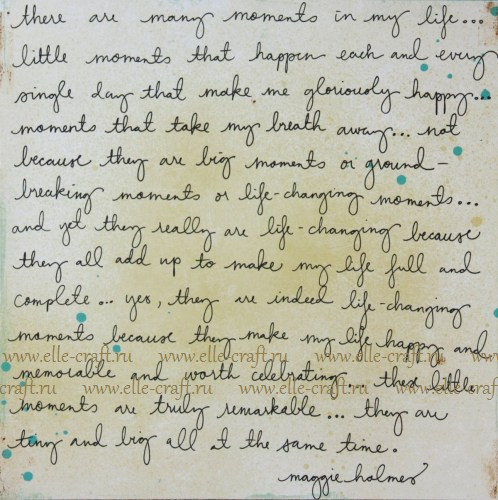 there are many moments in my life...
little moments that happen each and every
single day that make me gloriously happy...
moments that take my breath away... not
because they are big moments or ground-
breaking moments or life-changing moments...
and yet they really are life-changing because
they all add up to make my life full and
complete... yes, they are indeed life-changing
moments because they make my life happy and
www.elle-craft.ru www.elle-craft.ru www.elle-craft.ru
memorable and worth celebrating... these little
www.elle-craft.ru www.elle-craft.ru www.elle-craft.ru
moments are truly remarkable... they are
tiny and big all at the same time.
maggie holmes